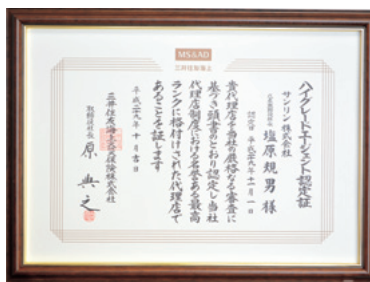 MS&AD
三井住友海上
ハイグレードエージェント認定証
サンリン株式会社
代表取締役社長
塩原規男 様
認定日 平成二十九年十二月一日
貴代理店を当社の厳格なる審査に
基づき頭書のとおり認定し当社
代理店制度における名誉ある最高
ランクに格付けされた代理店で
あることを証します
平成二十九年十月吉日
三井住友海上火災保険株式会社
取締役社長
原 典之